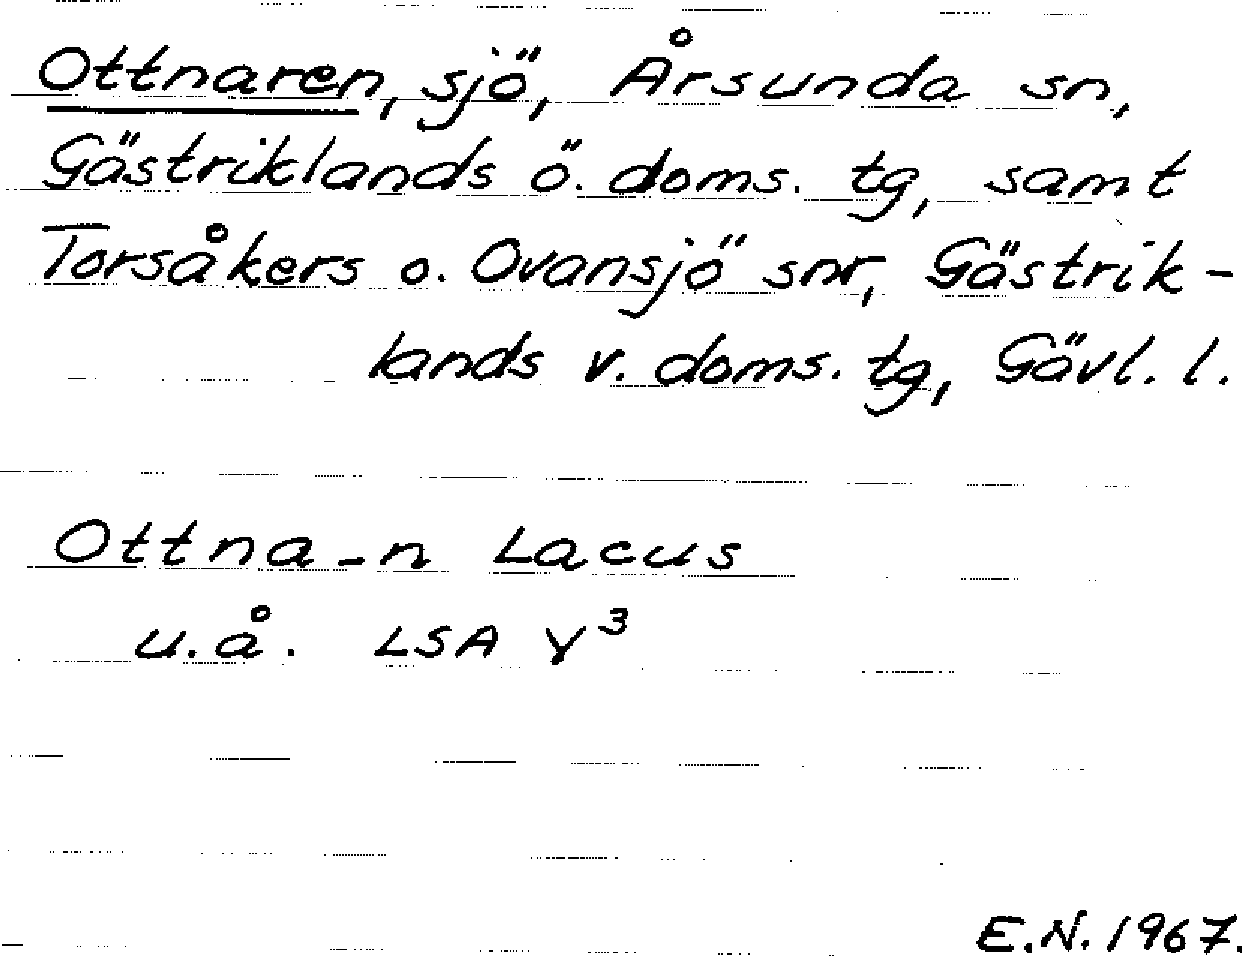 Ottnaren, sjö, Årsunda sn,
Gästriklands ö. doms. tg, samt
Torsåkers o. Ovansjö snr, Gästrik-
lands v. doms. tg, Gävl. l.
Ottna-n Lacus
u.å. LSA Y³
E.N. 1967.